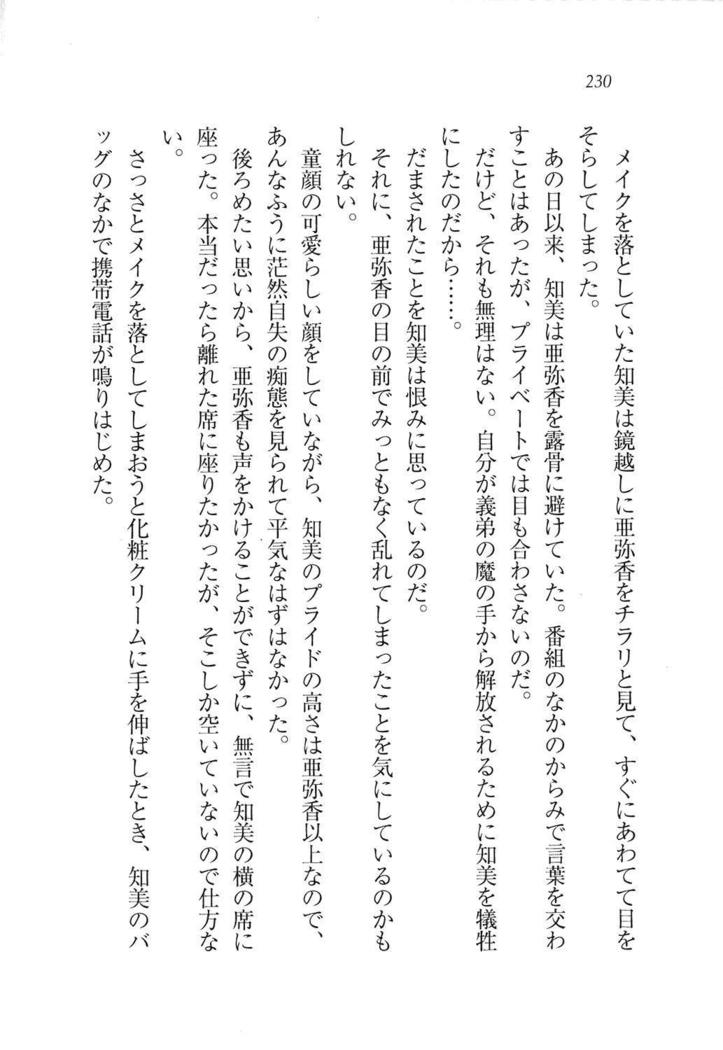 230
メイクを落としていた知美は鏡越しに亜弥香をチラリと見て、すぐにあわてて目を
そらしてしまった。
あの日以来、知美は亜弥香を露骨に避けていた。番組のなかのからみで言葉を交わ
すことはあったが、プライベートでは目も合わさないのだ。
だけど、それも無理はない。自分が義弟の魔の手から解放されるために知美を犠牲
にしたのだから……。
だまされたことを知美は恨みに思っているのだ。
それに、亜弥香の目の前でみっともなく乱れてしまったことを気にしているのかも
しれない。
童顔の可愛らしい顔をしていながら、知美のプライドの高さは亜弥香以上なので、
あんなふうに茫然自失の痴態を見られて平気なはずはなかった。
後ろめたい思いから、亜弥香も声をかけることができずに、無言で知美の横の席に
座った。本当だったら離れた席に座りたかったが、そこしか空いていないので仕方な
い。
さっさとメイクを落としてしまおうと化粧クリームに手を伸ばしたとき、知美のバ
ッグのなかで携帯電話が鳴りはじめた。